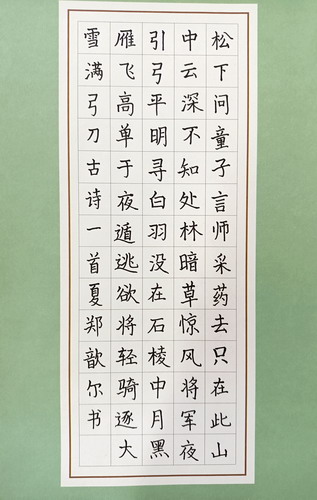 松下问童子言师采药去只在此山
中云深不知处林暗草惊风将军夜
引弓平明寻白羽没在石棱中月黑
雁飞高单于夜遁逃欲将轻骑逐大
雪满弓刀古诗一首夏郑歆尔书